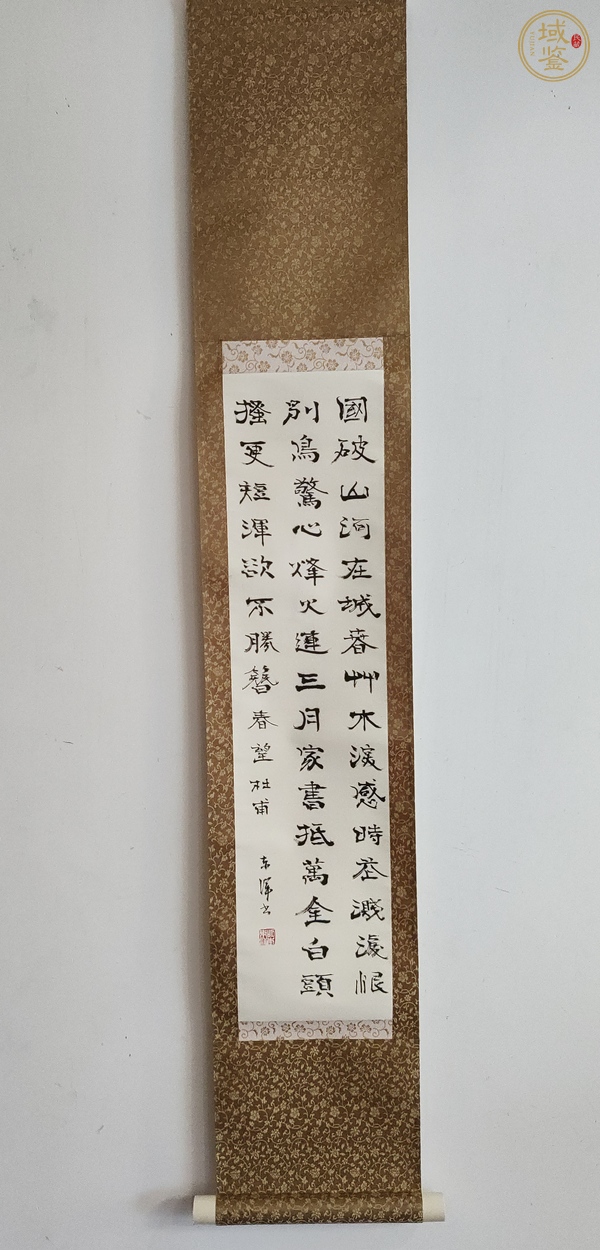 國破山河在城春艸木深感時花濺淚恨
別鳥驚心烽火連三月家書抵萬金白頭
搔更短渾欲不勝簪春望杜甫
域鉴